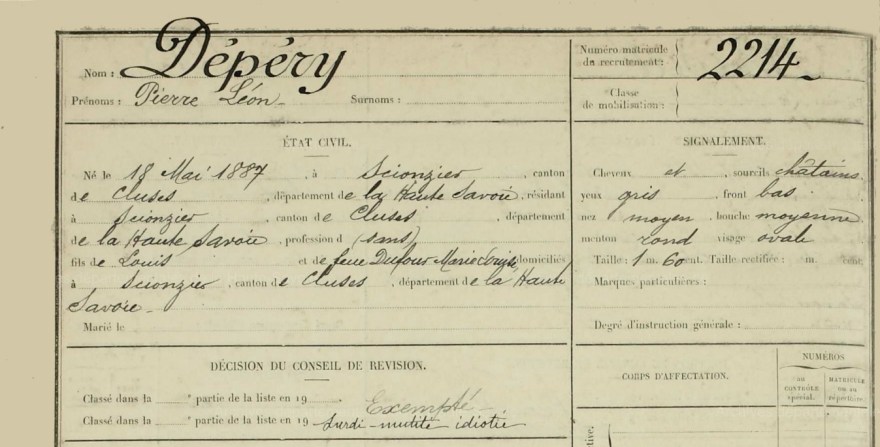 Nom : Dépéry
Prénoms : Pierre Léon Surnoms :
Numéro matricule du recrutement : 2214
Classe de mobilisation :
ÉTAT CIVIL.
Né le 18 Mai 1887, à Scionzier, canton
de Cluses, département de la Haute Savoie, résidant
à Scionzier, canton de Cluses département
de la Haute Savoie, profession d (sans)
fils de Louis et de feue Dufour Marie domiciliés
à Scionzier, canton de Cluses, département de la Haute
Savoie
Marié le
SIGNALEMENT.
Cheveux et, sourcils châtains
yeux gris, front bas
nez moyen, bouche moyenne
menton rond visage ovale
Taille : 1 m. 60 cent. Taille rectifiée : m. cent.
Marques particulières :
Degré d'instruction générale :
DÉCISION DU CONSEIL DE REVISION.
Classé dans la e partie de la liste en 19 . Exempté
Classé dans la e partie de la liste en 19 surdi-mutité idiotie
CORPS D'AFFECTATION.
NUMEROS
AU CONTRÔLE spécial.
MATRICULE ou au répertoire.